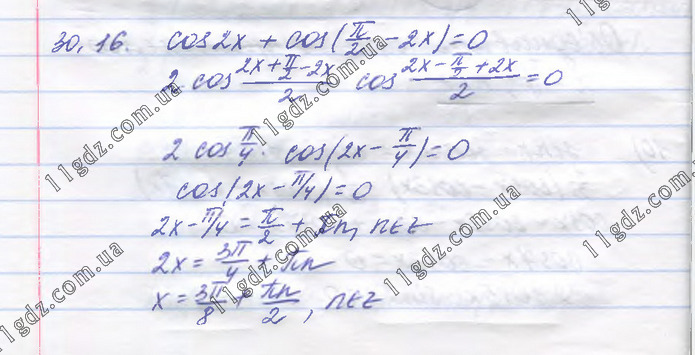 30.16. cos2x + cos(π/2 - 2x) = 0
2 cos (2x + π/2 - 2x)/2 cos (2x - π/2 + 2x)/2 = 0
2 cos π/4 · cos(2x - π/4) = 0
cos(2x - π/4) = 0
2x - π/4 = π/2 + πn, n∈z
2x = 3π/4 + πn
x = 3π/8 + πn/2, n∈z
11gdz.com.ua
11gdz.com.ua
11gdz.com.ua
11gdz.com.ua
11gdz.com.ua
11gdz.com.ua
11gdz.com.ua
11gdz.com.ua